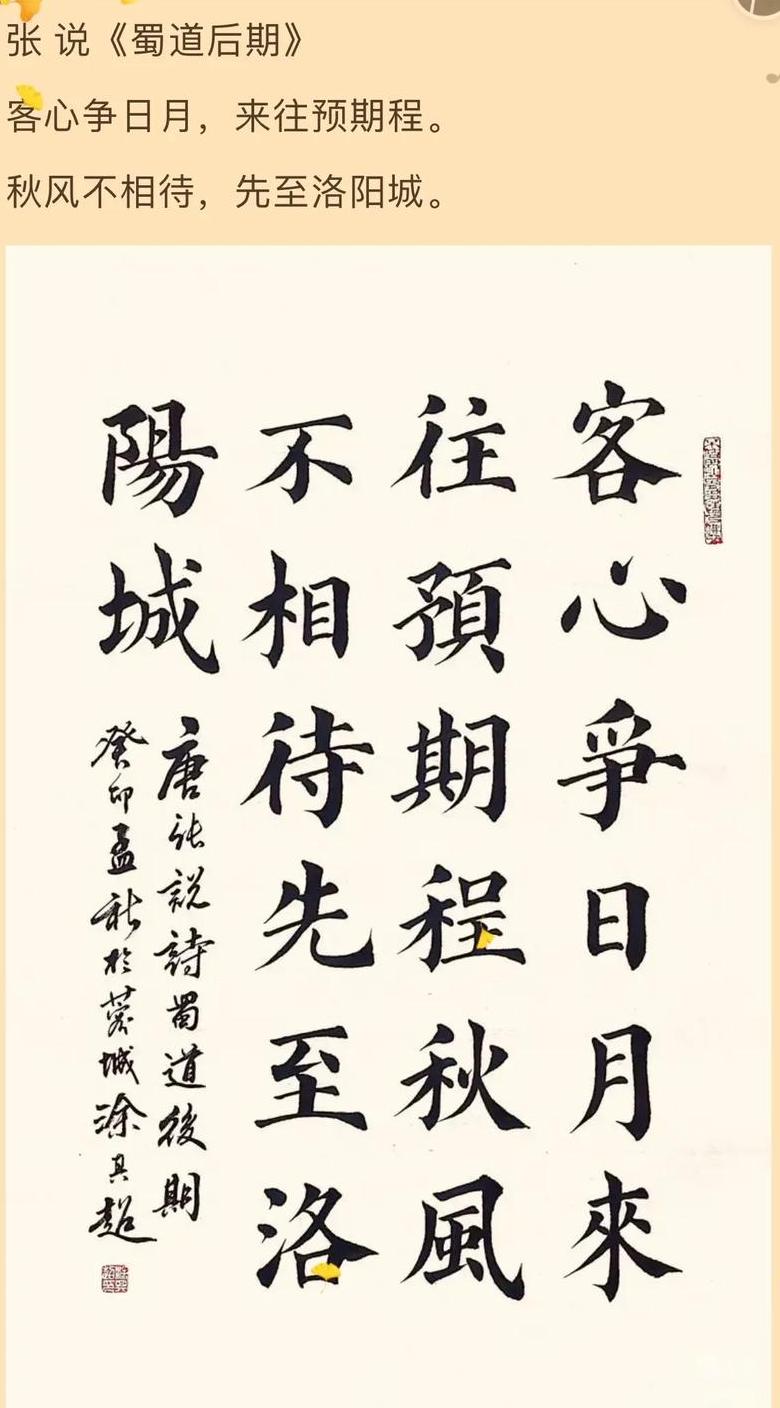 张 说《蜀道后期》
客心争日月，来往预期程。
秋风不相待，先至洛阳城。
客心爭日月來
往預期程秋風
不相待先至洛
陽城
唐张説詩蜀道後期
癸卯孟秋於蓉城涂其超